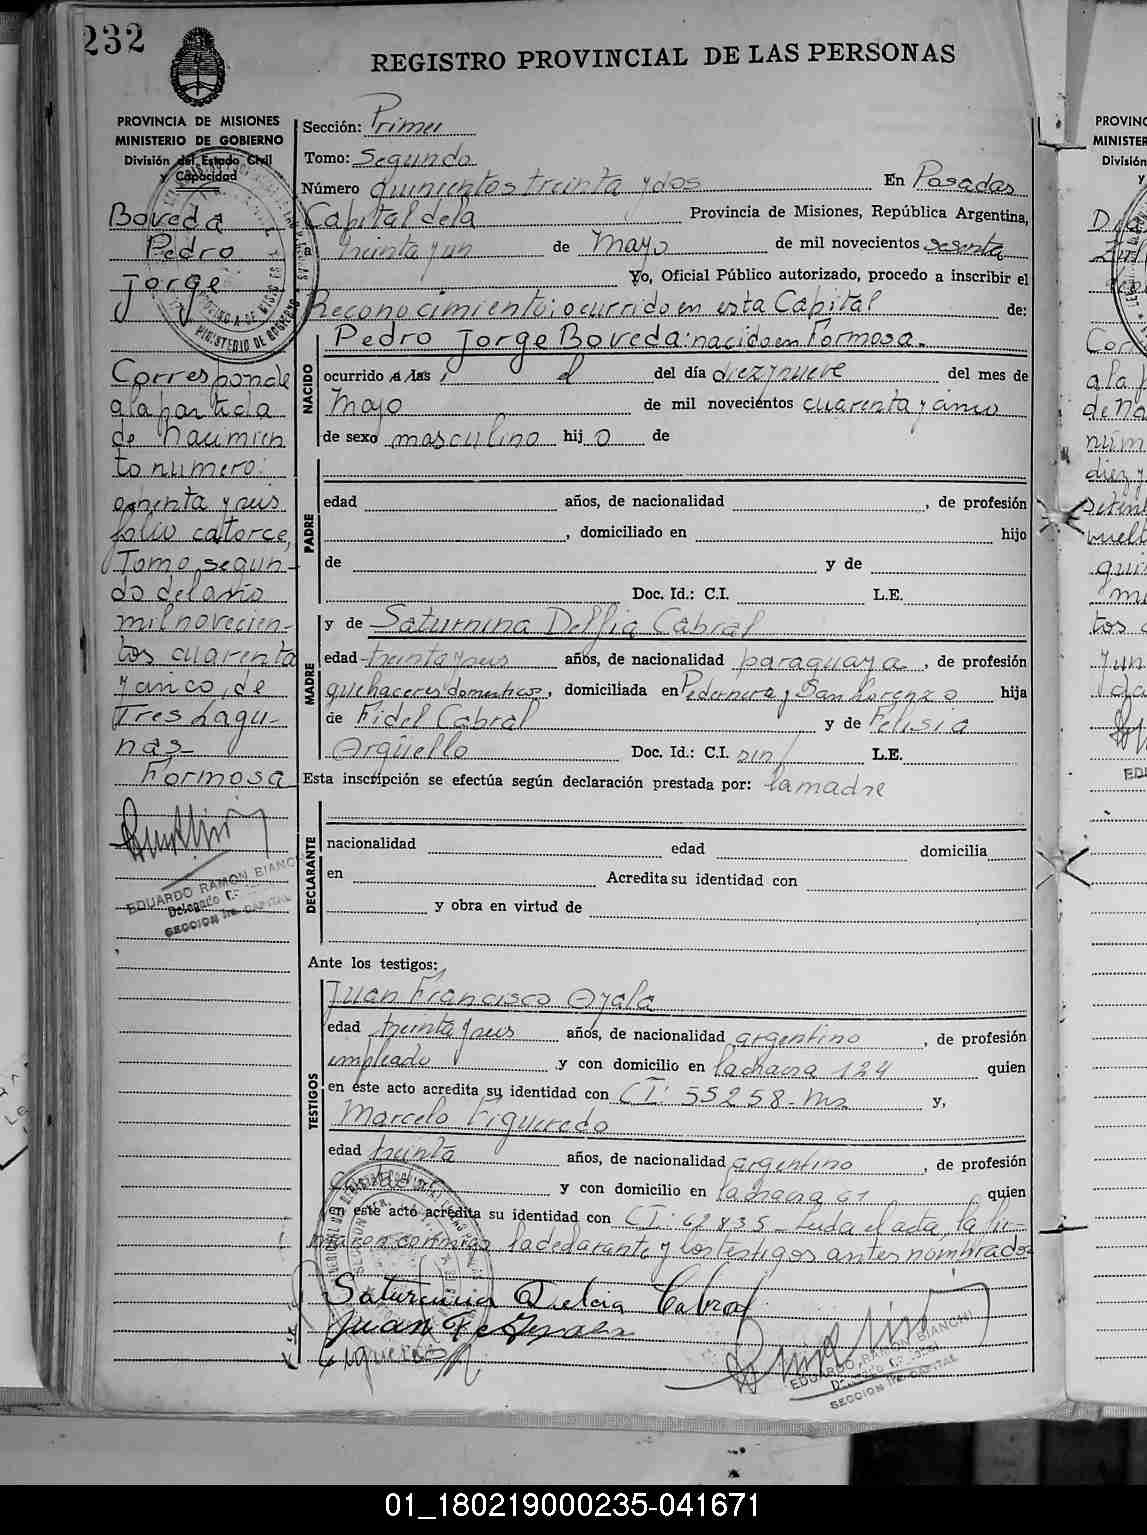 232
REGISTRO PROVINCIAL DE LAS PERSONAS
PROVINCIA DE MISIONES
MINISTERIO DE GOBIERNO
División del Estado Civil
y Capacidad
Boveda
Pedro
Jorge
Corresponde
a la partida
de nacimien
to numero:
ochenta y seis
folio catorce,
Tomo segun-
do del año
mil novecien-
tos cuarenta
y cinco, de
Tres Lagu-
nas-
Formosa
EDUARDO RAMON BIANCHI
Delegado
SECCION 1ra. CAPITAL
Sección: Primera
Tomo: Segundo
Número quinientos treinta y dos En Posadas
Capital de la Provincia de Misiones, República Argentina,
a treinta y un de Mayo de mil novecientos sesenta
Yo, Oficial Público autorizado, procedo a inscribir el
Reconocimiento: ocurrido en esta Capital de:
Pedro Jorge Boveda: nacido en Formosa.-
NACIDO
ocurrido a las, el del día diez y nueve del mes de
Mayo de mil novecientos cuarenta y cinco
de sexo masculino hijo de
PADRE
edad años, de nacionalidad , de profesión
, domiciliado en hijo
de y de
Doc. Id.: C.I. L.E.
MADRE
y de Saturnina Delfia Cabral
edad treinta y seis años, de nacionalidad paraguaya, de profesión
quehaceres domesticos, domiciliada en Pedernera y San Lorenzo hija
de Fidel Cabral y de Felisia
Argüello Doc. Id.: C.I. sin/ L.E.
Esta inscripción se efectúa según declaración prestada por: la madre
DECLARANTE
nacionalidad edad domicilia
en Acredita su identidad con
y obra en virtud de
Ante los testigos:
TESTIGOS
Juan Francisco Ayala
edad treinta y seis años, de nacionalidad argentino, de profesión
empleado y con domicilio en la chacra 124 quien
en este acto acredita su identidad con CI: 55258-Mns y,
Marcelo Figueredo
edad treinta años, de nacionalidad argentino, de profesión
y con domicilio en la chacra 61 quien
en este acto acredita su identidad con CI: 62835- Leida el acta, la fir-
maron conmigo la declarante y los testigos antes nombrados
Saturnina Delcia Cabral
Juan F. Ayala
Figueredo M
EDUARDO RAMON BIANCHI
SECCION 1ra. CAPITAL
01_180219000235-041671